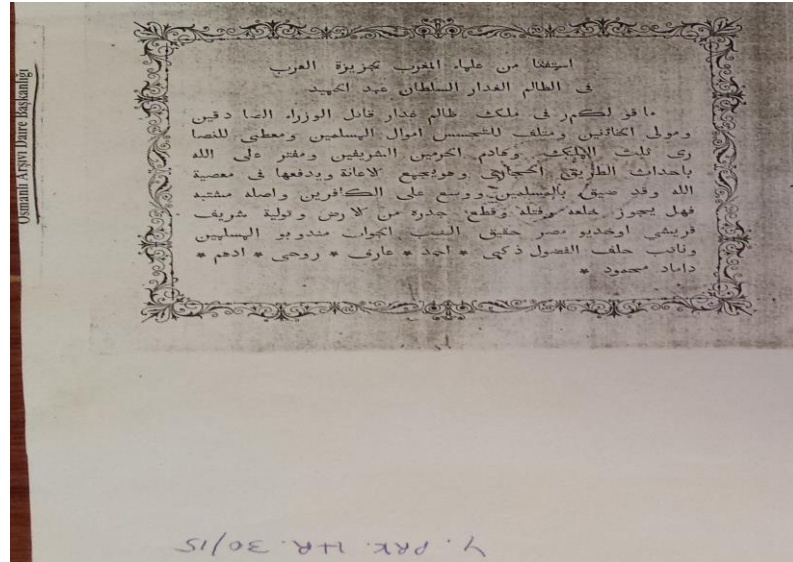 استفتا من علماء المغرب بجزيرة العرب
فى الظالم الغدار السلطان عبد الحميد
ما قو لكم فى ملك ظالم غدار قاتل الوزراء الصا دقين
ومولى الخائنين ومتلف للتجسس اموال المسلمين ومعطى للنصا
رى ثلث الملك وهادم الحرمين الشريفين ومفتر على الله
باحداث الطريق الحجازى وهويجمع لاعانة ويدفعها فى معصية
الله وقد ضيق بالمسلمين ووسع على الكافرين واصله مشتبه
فهل يجوز خلعه وقتله وقطع جدره من لارض وتولية شريف
قريشى اوخديو مصر حقيق النسب الجواب مندوبو المسلمين
ونائب حلف الفضول ذكى * احمد * عارف * روحى * ادهم *
داماد محمود *
Osmanlı Arşivi Daire Başkanlığı
Y. PRK. HR. 30/15